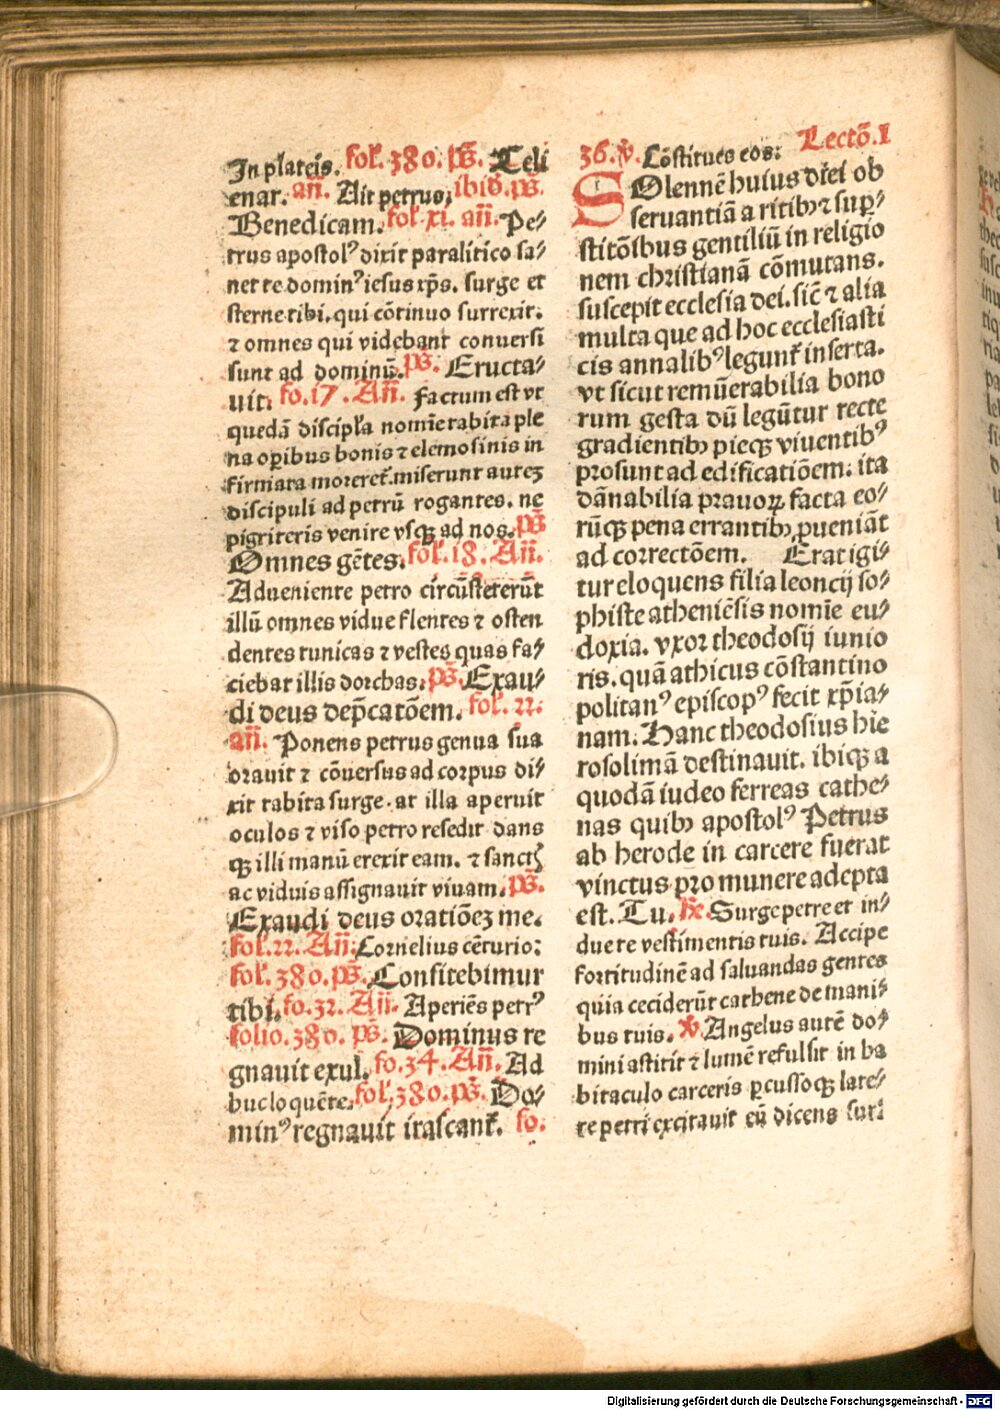 In plateis. fol. 380. ps̄. Celi
enar. añ. Ait petrus, ibid. ps̄.
Benedicam. fol xi. añ. Pe⸗
trus apostolꝰ dixit paralitico sa⸗
net te dominꝰ iesus xp̄s. surge et
sterne tibi. qui cōtinuo surrexit.
⁊ omnes qui videbant conuersi
sunt ad dominū. ps̄. Eructa⸗
uit. fo. 17. Añ. Factum est vt
quedā discipl̄a nomīe tabita ple
na oꝑibus bonis ⁊ elemosinis in
firmata moreret᷑. miserunt auteꝫ
discipuli ad petrū rogantes. ne
pigriteris venire vsqꝫ ad nos. ps̄
Omnes gētes. fol. 18. Añ.
Adueniente petro circūsteterūt
illū omnes vidue flentes ⁊ osten
dentes tunicas ⁊ vestes quas fa⸗
ciebat illis dorchas. ps̄. Exau⸗
di deus dep̄catōem. fol. 22.
añ. Ponens petrus genua sua
orauit ⁊ cōuersus ad corpus di⸗
xit tabita surge. at illa aperuit
oculos ⁊ viso petro resedit dans
qꝫ illi manū erexit eam. ⁊ sanctꝭ
ac viduis assignauit viuam. ps̄.
Exaudi deus oratiōeꝫ me.
fol. 22. Añ. Cornelius cēturio:
fol. 380. ps̄. Confitebimur
tibi. fo. 32. Añ. Aperiēs petrꝰ
folio. 380. ps̄. Dominus re
gnauit exul. fo. 34. Añ. Ad
huc loquēte. fol. 380. ps̄. Do⸗
minꝰ regnauit irascant᷑. fo.
36. v̄. Cōstitues eos: Lectō. I
SOlennē huius diei ob
seruantiā a ritibꝫ ⁊ suꝑ⸗
stitōibus gentiliū in religio
nem christianā cōmutans.
suscepit ecclesia dei. sic̄ ⁊ alia
multa que ad hoc ecclesiasti
cis annalibꝰ legunt᷑ inserta.
vt sicut remūerabilia bono
rum gesta dū legūtur recte
gradientibꝫ pieqꝫ viuentibꝰ
prosunt ad edificatiōem. ita
dānabilia prauoꝝ facta eo⸗
rūqꝫ pena errantibꝫ ꝓueniāt
ad correctōem. Erat igi
tur eloquens filia leoncij so⸗
phiste atheniēsis nomīe eu⸗
doxia. vxor theodosij iunio
ris. quā athicus cōstantino
politanꝰ episcopꝰ fecit xp̄ia⸗
nam. Hanc theodosius hie
rosolimā destinauit. ibiqꝫ a
quodā iudeo ferreas cathe⸗
nas quibꝫ apostolꝰ Petrus
ab herode in carcere fuerat
vinctus pro munere adepta
est. Tu. R̄. Surge petre et in⸗
due te vestimentis tuis. Accipe
fortitudinē ad saluandas gentes
quia ceciderūt cathene de mani⸗
bus tuis. v̄. Angelus autē do⸗
mini astitit ⁊ lumē refulsit in ha
bitaculo carceris ꝑcussoqꝫ late⸗
re petri excitauit eū dicens sur:
Digitalisierung gefördert durch die Deutsche Forschungsgemeinschaft - DFG